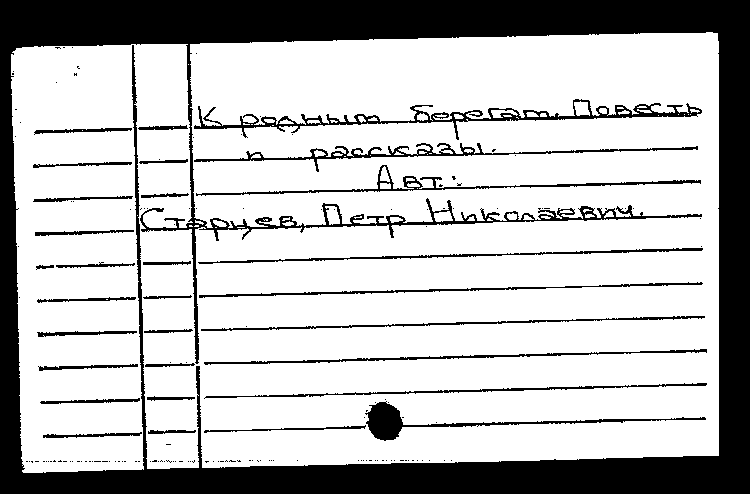 К родным берегам. Повесть
и рассказы.
Авт.:
Старцев, Петр Николаевич.